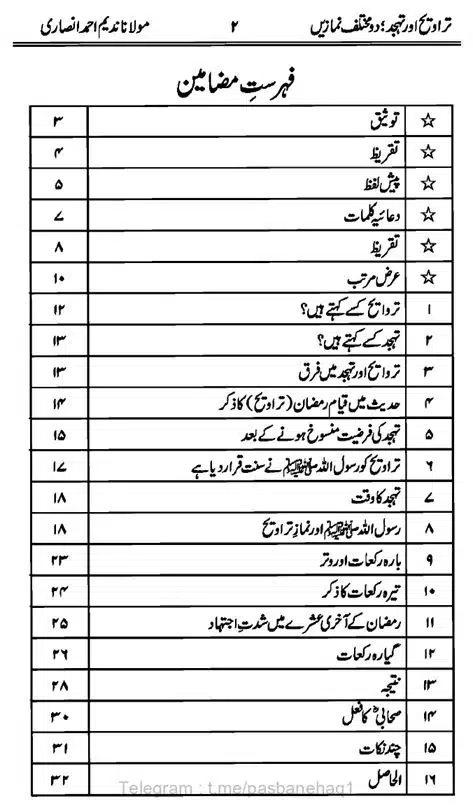 تراویح اور تہجد؛ دو مختلف نمازیں ۲ مولانا ندیم احمد انصاری
فہرستِ مضامین
☆ توثیق ۳
☆ تقریظ ۴
☆ پیش لفظ ۵
☆ دعائیہ کلمات ۷
☆ تقریظ ۸
☆ عرض مرتب ۱۰
۱ تراویح کسے کہتے ہیں؟ ۱۲
۲ تہجد کسے کہتے ہیں؟ ۱۳
۳ تراویح اور تہجد میں فرق ۱۳
۴ حدیث میں قیام رمضان (تراویح) کا ذکر ۱۴
۵ تہجد کی فرضیت منسوخ ہونے کے بعد ۱۵
۶ تراویح کو رسول اللہ ﷺ نے سنت قرار دیا ہے ۱۷
۷ تہجد کا وقت ۱۸
۸ رسول اللہ ﷺ اور نمازِ تراویح ۱۸
۹ بارہ رکعات اور وتر ۲۳
۱۰ تیرہ رکعات کا ذکر ۲۴
۱۱ رمضان کے آخری عشرے میں شدتِ اجتہاد ۲۵
۱۲ گیارہ رکعات ۲۶
۱۳ نتیجہ ۲۸
۱۴ صحابیؓ کا فعل ۳۰
۱۵ چند نکات ۳۱
۱۶ الحاصل ۳۲
Telegram : t.me/pasbanehaq1